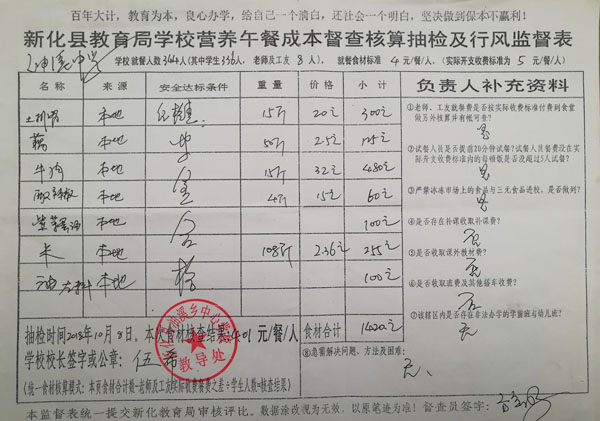 百年大计，教育为本，良心办学，给自己一个清白，还社会一个明白，坚决做到保本不赢利！
新化县教育局学校营养午餐成本督查核算抽检及行风监督表
学校就餐人数344人(其中学生336人，老师及工友8人)，就餐食材标准4元/餐/人，(实际开支收费标准为5元/餐/人)
名称 来源 安全达标条件 重量 价格 小计 负责人补充资料
本地 15斤 20元 300元
藕 本地 50斤 2.5元 125元
牛肉 本地 15斤 32元 480元
本地 4斤 15元 60元
本地 100元
米 本地 108斤 2.36元 255元
油 本地 100元
①老师、工友就餐费是否按实际收费标准付到食堂做另外核算并有帐可查？
是
②试餐人员是否提前20分钟试餐？试餐人员餐费没在实际开支收费标准内的每顿饭是否没超过5人试餐？
是
③严禁冰冻市场上的食品与三无食品进校，是否做到？
是
④是否存在补课收取补课费？
否
⑤是否收取课外教材费？
否
⑥是否收取班费及其他搭车收费？
否
⑦该辖区内是否存在非法办学的学前班与幼儿班？
无
抽检时间2018年10月8日。本次食材核查结果：4.01元/餐/人 食材合计 1420元
学校校长签字或公章：
教导处
(统一食材核算模式：本页食材合计数-老师及工友实际收费餐费之差÷学生人数=核查结果)
⑧急需解决问题、方法及困难：
无、
本监督表统一提交新化教育局审核评比。数据涂改视为无效，以原笔迹为准！督查员签字：